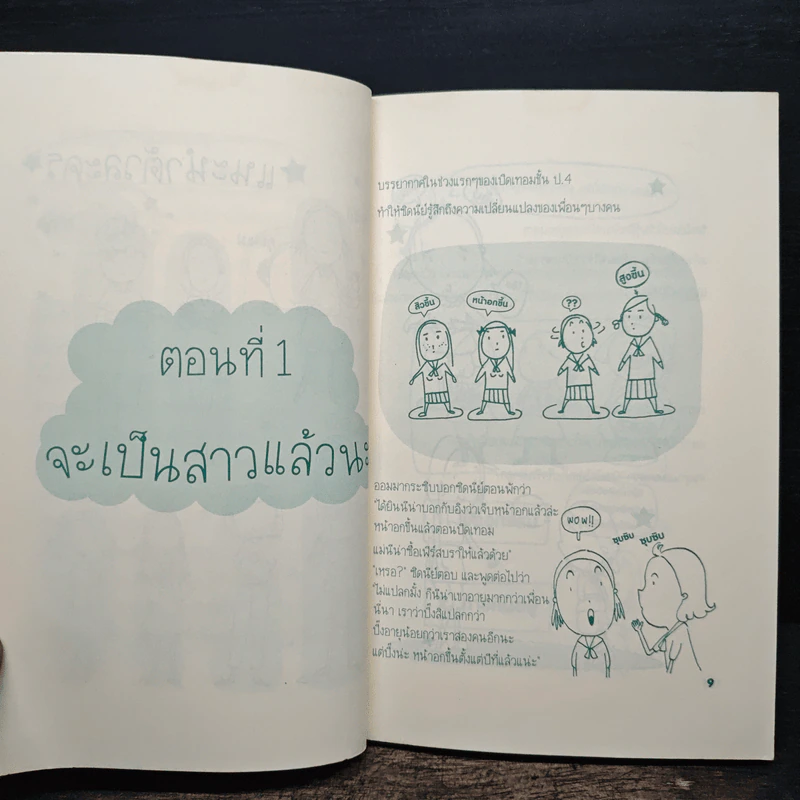 ตอนที่ 1
จะเป็นสาวแล้วนะ
บรรยากาศในช่วงแรกๆของเปิดเทอมชั้น ป.4
ทำให้ซิดนีย์รู้สึกถึงความเปลี่ยนแปลงของเพื่อนๆบางคน
สิวขึ้น
หน้าอกขึ้น
??
สูงขึ้น
ออมมากระซิบบอกซิดนีย์ตอนพักว่า
"ได้ยินนีน่าบอกกับอิงว่าเจ็บหน้าอกแล้วล่ะ
หน้าอกขึ้นแล้วตอนปิดเทอม
แม่นีน่าซื้อเฟิร์สบราให้แล้วด้วย"
"เหรอ?" ซิดนีย์ตอบ และพูดต่อไปว่า
"ไม่แปลกมั้ง ก็นีน่าเขาอายุมากกว่าเพื่อน
นี่นา เราว่าปิ๊งสิแปลกกว่า
ปิ๊งอายุน้อยกว่าเราสองคนอีกนะ
แต่ปิ๊งน่ะ หน้าอกขึ้นตั้งแต่ปีที่แล้วแน่ะ"
WOW!!
ซุบซิบ ซุบซิบ
9